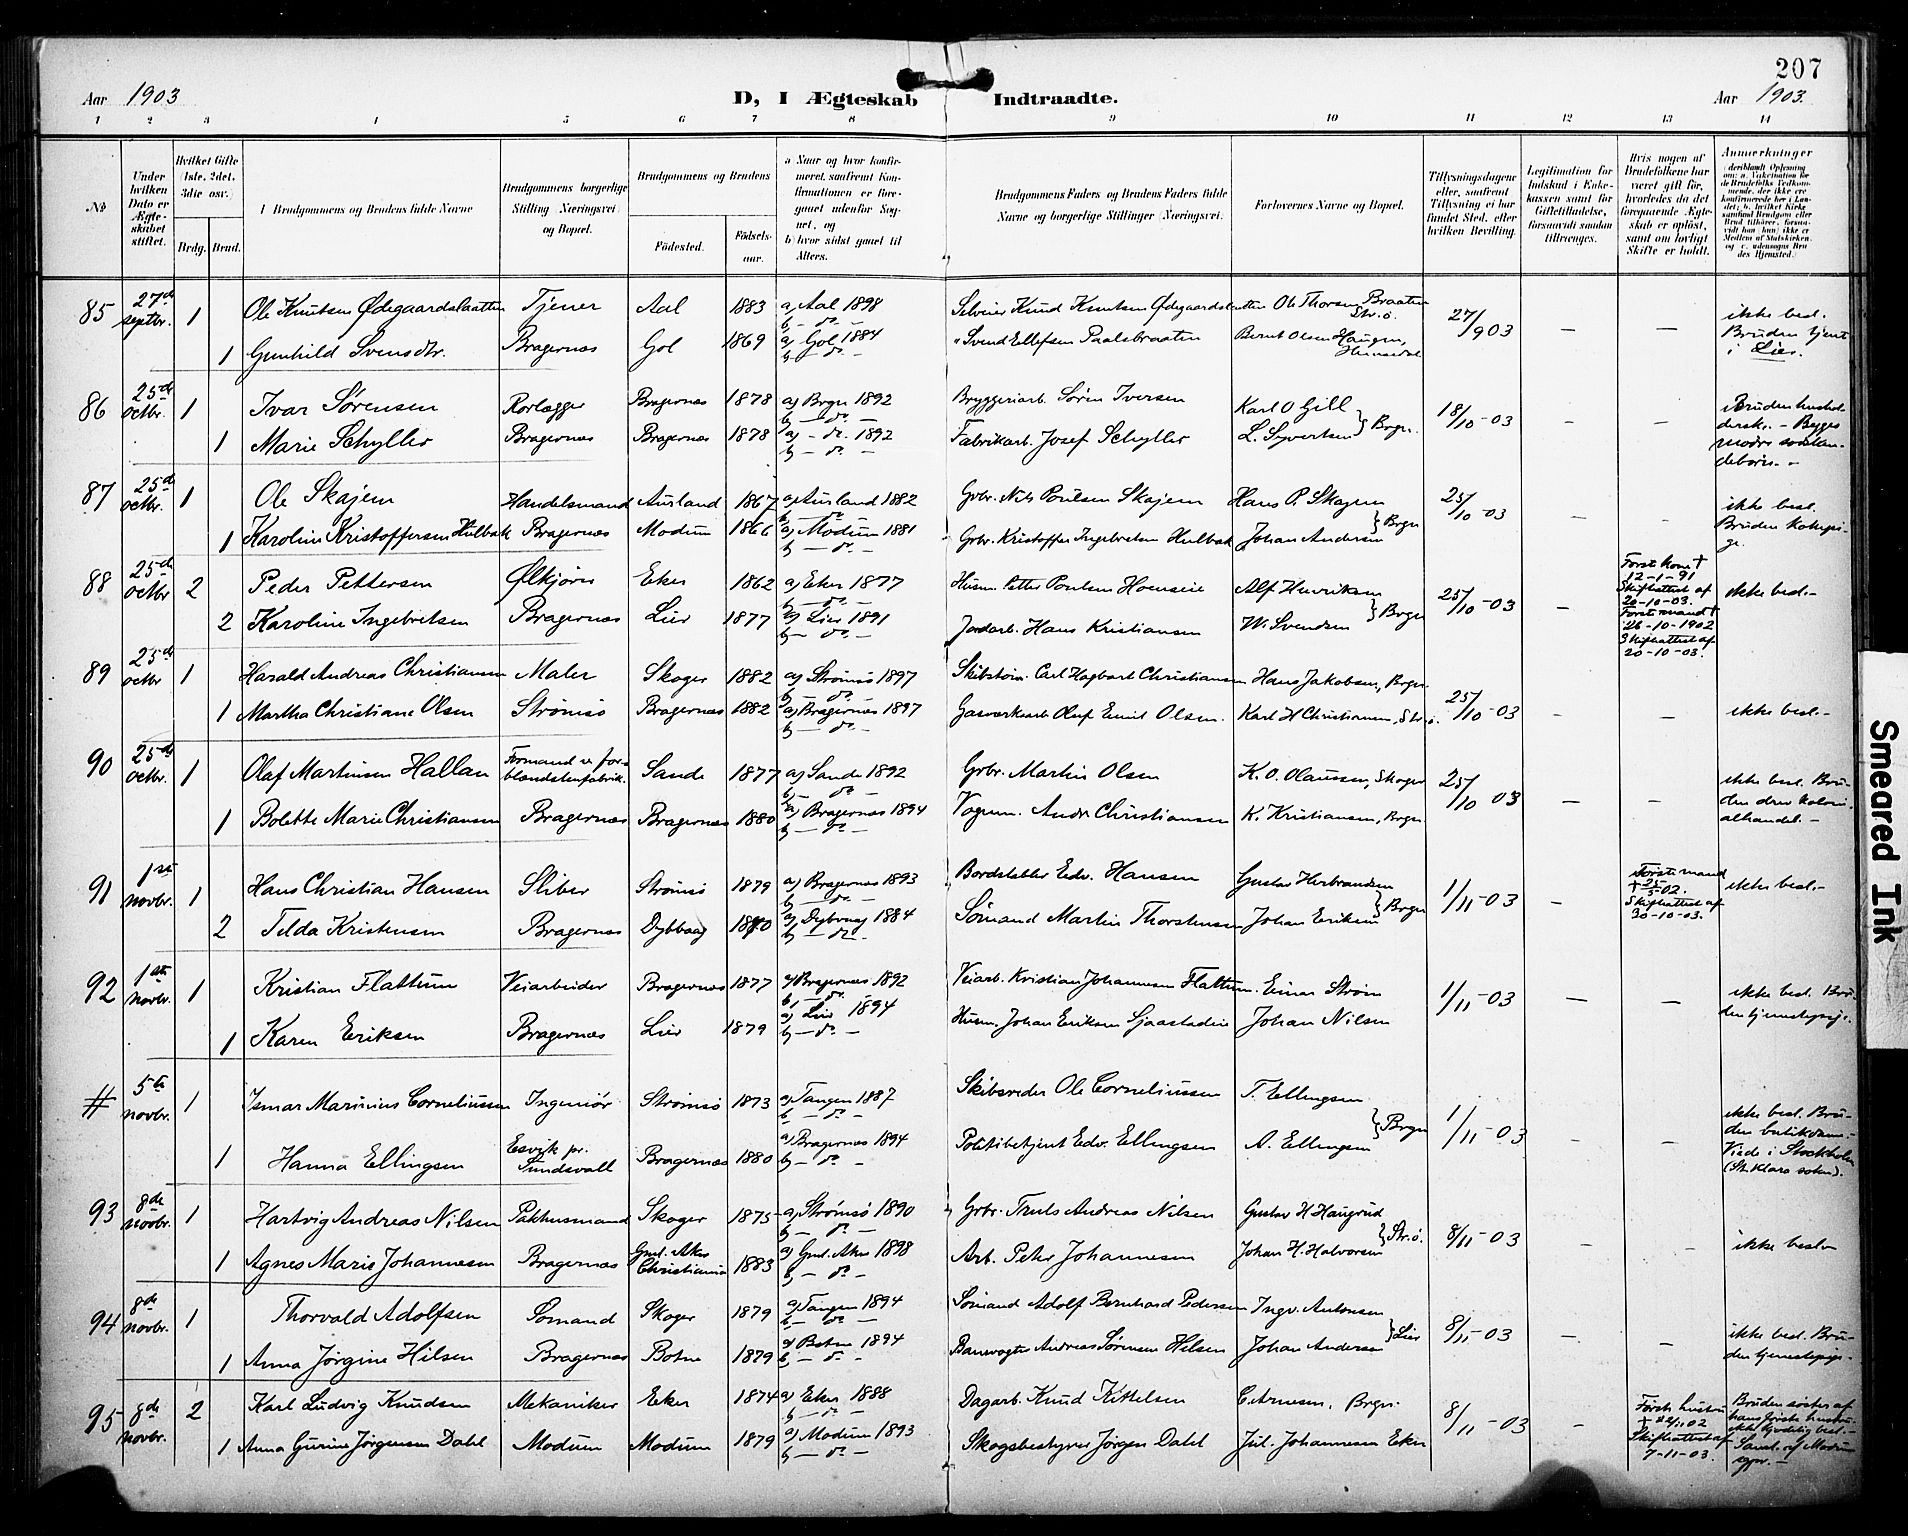 207
Aar 1903
D, I Ægteskab Indtraadte.
Aar 1903.
1 2 3 4 5 6 7 8 9 10 11 12 13 14
No.
Under hvilken Dato er Ægteskabet stiftet.
Hvilket Gifte (1ste, 2det, 3die osv.)
Brdg. Brud.
I Brudgommens og Brudens fulde Navne
Brudgommens borgerlige Stilling (Næringsvei) og Bopæl.
Brudgommens og Brudens
Fødested. Fødselsaar.
a Naar og hvor konfirmeret, samt om Konfirmationen er foregaaet udenfor Sognet, og
b) hvor sidst gaaet til Alters.
Brudgommens Faders og Brudens Faders fulde Navne og borgerlige Stillinger (Næringsvei.
Forlovernes Navne og Bopæl.
Tillysningsdagene eller, saafremt Tillysning ei har fundet Sted, efter hvilken Bevilling.
Legitimation for Indskud i Enkekassen samt for Giftetilladelse, forsaavidt saadan tiltrænges.
Hvis nogen af Brudefolkene har været gift før, hvorledes da det foregaaende Ægteskab er opløst, samt om lovligt Skifte er holdt.
Anmerkninger
85 27de septbr. 1 Ole Knutsen Ødegaardslaatten Tjener Aal 1883 a) Aal 1898 b) – do – Selveier Knud Knutsen Ødegaardslaatten Ole Thorsen Braaten Str.ö. 27/9 03 – – ikke besl. Bruden tjent i Lier.
1 Gunhild Svensdtr. Bragernæs Gol 1869 a) Gol 1884 b) – do – " Svend Ellefsen Paalsbraaten Bernt Olsen Haugen, Hemsedal
86 25de octbr. 1 Ivar Sørensen Rørlægger Bragernæs 1878 a) Brgn 1892 b) – do – Bryggeriarb. Søren Iversen Karl O Gill 18/10 -03 – –
1 Marie Schyller Bragernæs Bragernæs 1878 a) – do. 1892 b) – do – Fabrikarb. Josef Schyller L. Syvertsen } Brgn.
87 25de octbr. 1 Ole Skajem Handelsmand Aurland 1867 a) Aurland 1882 b) – do – Grbr. Nils Poulsen Skajem Hans P. Skagem 25/10 -03 – – ikke besl.
1 Karoline Kristoffersen Hulbak Bragernæs Modum 1866 a) Modum 1881 b) – do – Grbr. Kristoffer Ingebretsen Hulbak Johan Andersen } Brgn
88 25de octbr 2 Peder Pettersen Ølkjører Eker 1862 a) Eker 1877 b) – do – Husm. Petter Poulsen Alf Henriksen 25/10 -03 – Første kone † 12-1-91 Skifteattest af 20-10-03. ikke besl.–
2 Karoline Ingebretsen Bragernæs Lier 1877 a) Lier 1891 b) – do – Jordarb. Hans Kristiansen W. Svendsen } Brgn Første mand † 26-10-1902 Skifteattest af 20-10-03.
89 25de octbr 1 Harald Andreas Christiansen Maler Skoger 1882 a) Strømsö 1897 b) – do – Skibstøm. Carl Hagbart Christiansen Hans Jakobsen, Brgn. 25/10 -03 – – ikke besl.–
1 Martha Christiane Olsen Strømsö Bragernæs 1882 a) Bragernæs 1897 b) – do – Gasverksarb Oluf Emil Olsen. Karl H Christiansen, Str.ö.
90 25de octbr. 1 Olaf Martinsen Hallan Formand v. forblændstenfabrik. Sande 1877 a) Sande 1892 b) – do – Grbr. Martin Olsen K. O. Olaussen, Skoger 25/10 03 – – ikke besl. Bruden drev kolonialhandel.–
1 Bolette Marie Christiansen Bragernæs Bragernæs 1880 a) Bragernæs 1894 b) – do – Vognm. Andr. Christiansen K. Kristiansen, Brgn
91 1ste novbr. 1 Hans Christian Hansen Sliber Strömsö 1879 a) Bragernæs 1893 b) – do – Bordstabler Edv. Hansen Gustav Herbrandsen 1/11 -03 – Første mand † Skifteattest af 30-10-03. ikke besl.–
2 Tilda Kristensen Bragernæs Dybvaag 1870 a) Dybvaag 1884 b) – do – Sömand Martin Thorstensen Johan Eriksen } Brgn
92 1ste novbr. 1 Kristian Flattum Veiarbeider Bragernæs 1877 a) Bragernæs 1892 b) – do – Veiarb. Kristian Johannesen Flattum. Einar Strøm 1/11 -03 – – ikke besl. Bruden tjenestepige.
1 Karen Eriksen Bragernæs Lier 1879 a) Lier 1894 b) – do – Husm. Johan Eriksen Sjaastadeie Johan Nilsen
# 5te novbr. 1 Ismar Marinius Corneliussen Ingeniør Strömsö 1873 a) Tangen 1887 b) – do – Skibsreder Ole Corneliussen T. Ellingsen 1/11 -03 – – ikke besl. Bruden butikdame.– Viede i Stockholm (St. Klara soken).
1 Hanna Ellingsen Essvik pr. Sundsvall Bragernæs 1880 a) Bragernæs 1894 b) – do – Politibetjent Edv. Ellingsen A. Ellingsen } Brgn
93 8de novbr. 1 Hartvig Andreas Nilsen Pakhusmand Skoger 1875 a) Strømsö 1890 b) – do – Grbr. Truls Andreas Nilsen Gustav H Haugrud 8/11 -03 – – ikke besl
1 Agnes Marie Johannesen Bragernæs Gml. Aker Christiania 1883 a) Gml. Aker 1898 b) – do – Arb. Peter Johannesen Johan H. Halvorsen } Str.ö.
94 8de novbr. 1 Thorvald Adolfsen Sömand Skoger 1879 a) Tangen 1894 b) – do – Sömand Adolf Bernhard Pedersen Ingv. Antonsen 8/11 -03 – – ikke besl. Bruden tjenestepige.
1 Anna Jørgine Hilsen Bragernæs Botne 1879 a) Botne 1894 b) – do – Banevogter Andreas Sörensen Hilsen Johan Andersen } Lier
95 8de novbr. 2 Karl Ludvig Knudsen Mekaniker Eker 1874 a) Eker 1888 b) – do – Dagarb. Knud Kittelsen C. Arnesen, Brgn. 8/11 -03 – Første hustru † 22/11 02 Skifteattest af 7-11-03. Bruden søster af hans første hustru
1 Anna Gurine Jørgensen Dahl Modum Modum 1879 a) Modum 1893 b) – do – Skogsbestyrer Jørgen Dahl Jul. Johannesen Eker
Smeared Ink